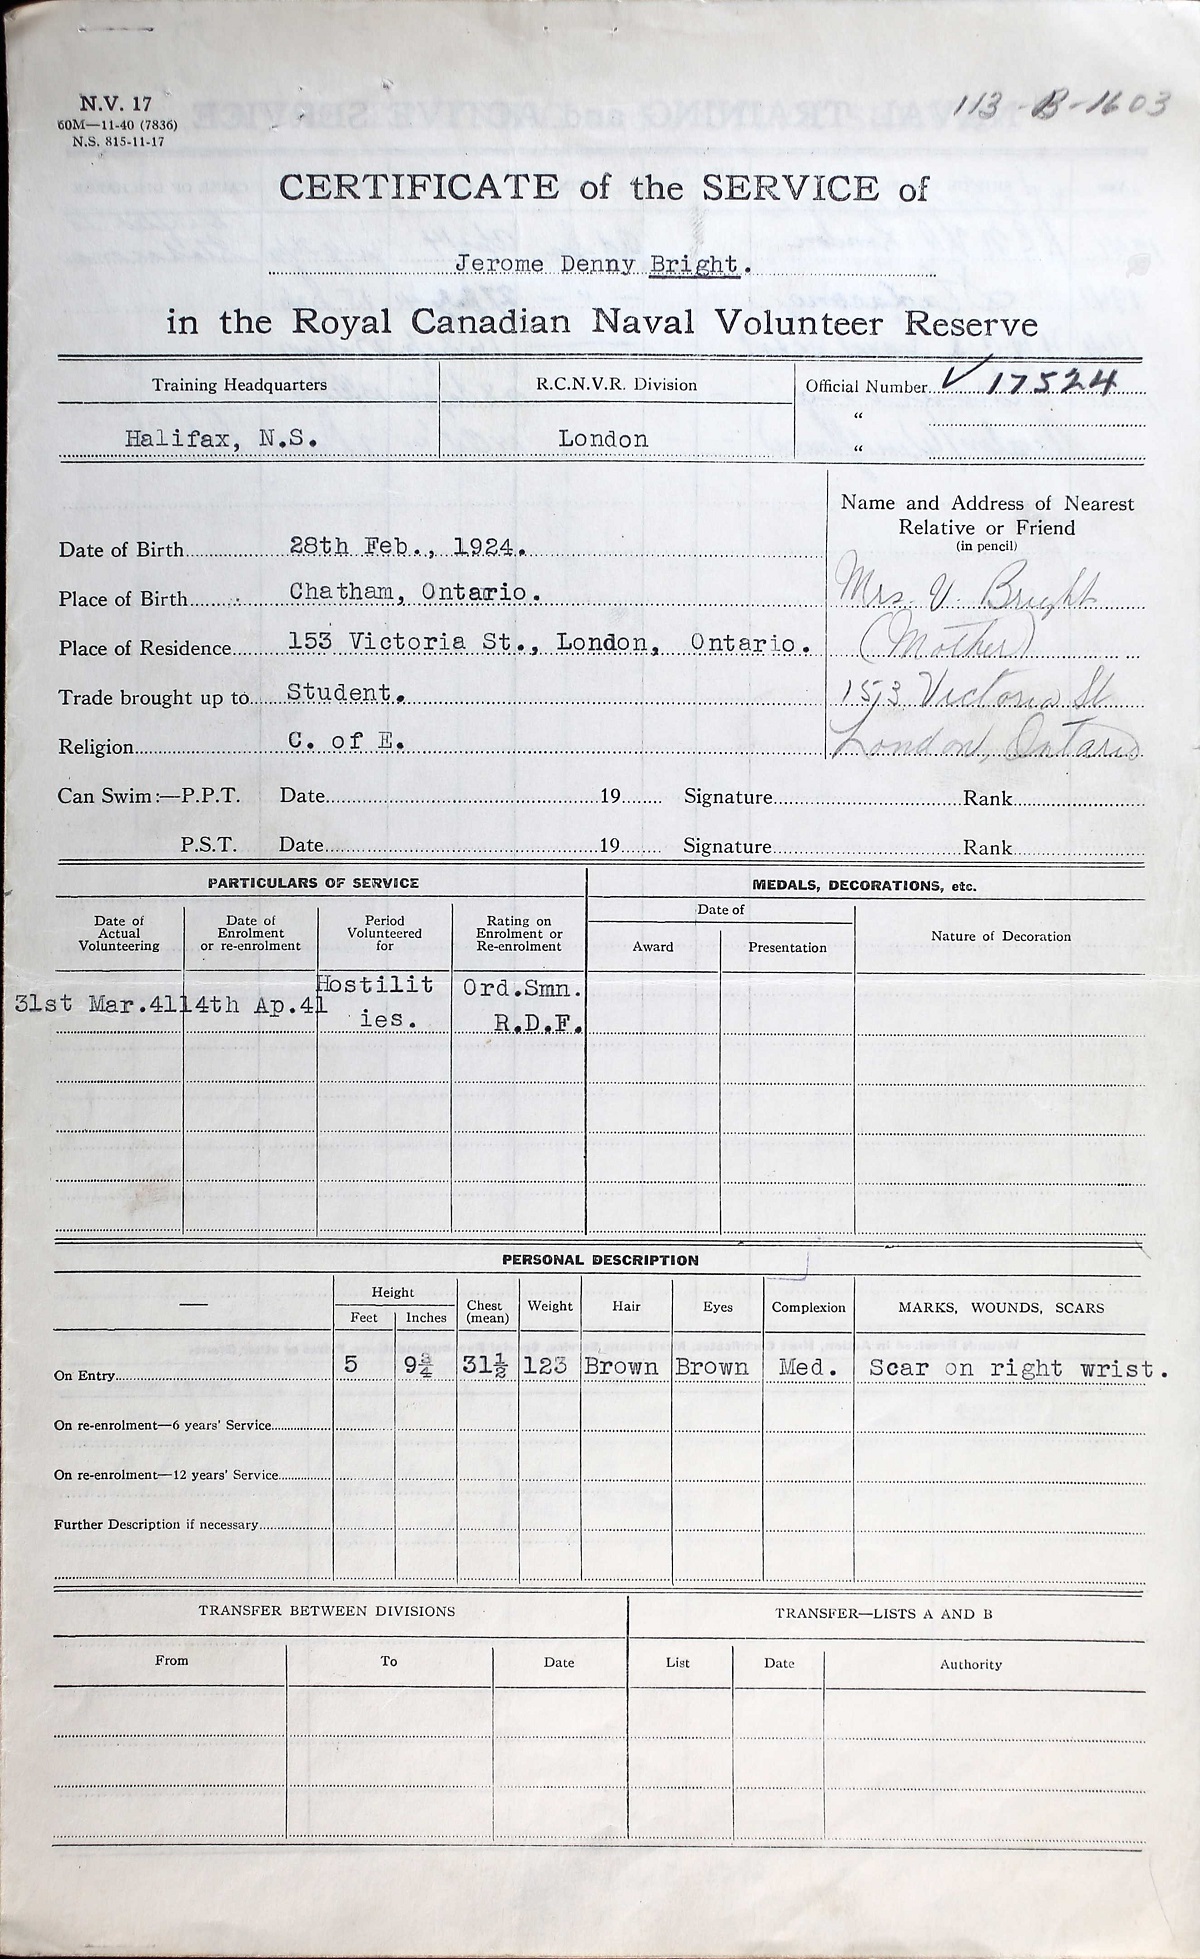 N.V. 17
60M—11-40 (7836)
N.S. 815-11-17
113-B-1603
CERTIFICATE of the SERVICE of
Jerome Denny Bright.
in the Royal Canadian Naval Volunteer Reserve
Training Headquarters R.C.N.V.R. Division Official Number ✓ 17524
"
Halifax, N.S. London "
Name and Address of Nearest
Relative or Friend
(in pencil)
Date of Birth 28th Feb., 1924.
Place of Birth Chatham, Ontario. Mrs. V. Bright
Place of Residence 153 Victoria St., London, Ontario. (Mother)
Trade brought up to Student. 153 Victoria St
Religion C. of E. London, Ontario
Can Swim:—P.P.T. Date 19 Signature Rank
P.S.T. Date 19 Signature Rank
PARTICULARS OF SERVICE MEDALS, DECORATIONS, etc.
Date of Actual Volunteering Date of Enrolment or re-enrolment Period Volunteered for Rating on Enrolment or Re-enrolment Date of Award Presentation Nature of Decoration
31st Mar.41 14th Ap.41 Hostilit Ord.Smn.
ies. R.D.F.
PERSONAL DESCRIPTION
— Height Feet Inches Chest (mean) Weight Hair Eyes Complexion MARKS, WOUNDS, SCARS
On Entry 5 9¾ 31½ 123 Brown Brown Med. Scar on right wrist.
On re-enrolment—6 years' Service
On re-enrolment—12 years' Service
Further Description if necessary
TRANSFER BETWEEN DIVISIONS TRANSFER—LISTS A AND B
From To Date List Date Authority